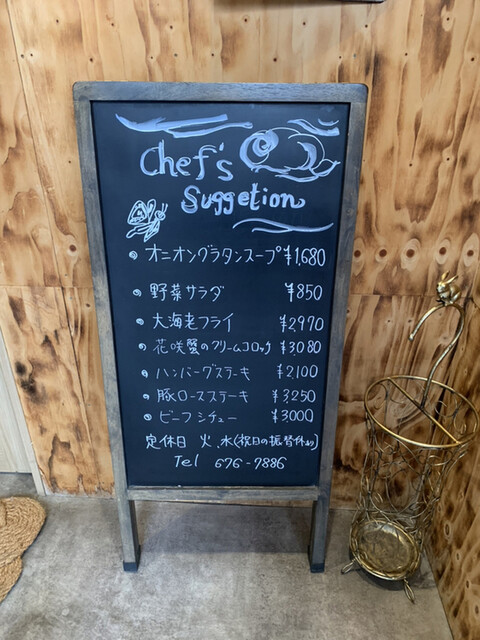 Chef's
Suggetion
オニオングラタンスープ ¥1,680
野菜サラダ ¥850
大海老フライ ¥2970
花咲蟹のクリームコロッケ ¥3,080
ハンバーグステーキ ¥2100
豚ロースステーキ ¥3,250
ビーフシチュー ¥3,000
定休日 火、水(祝日の振替休あり)
Tel 676-7886